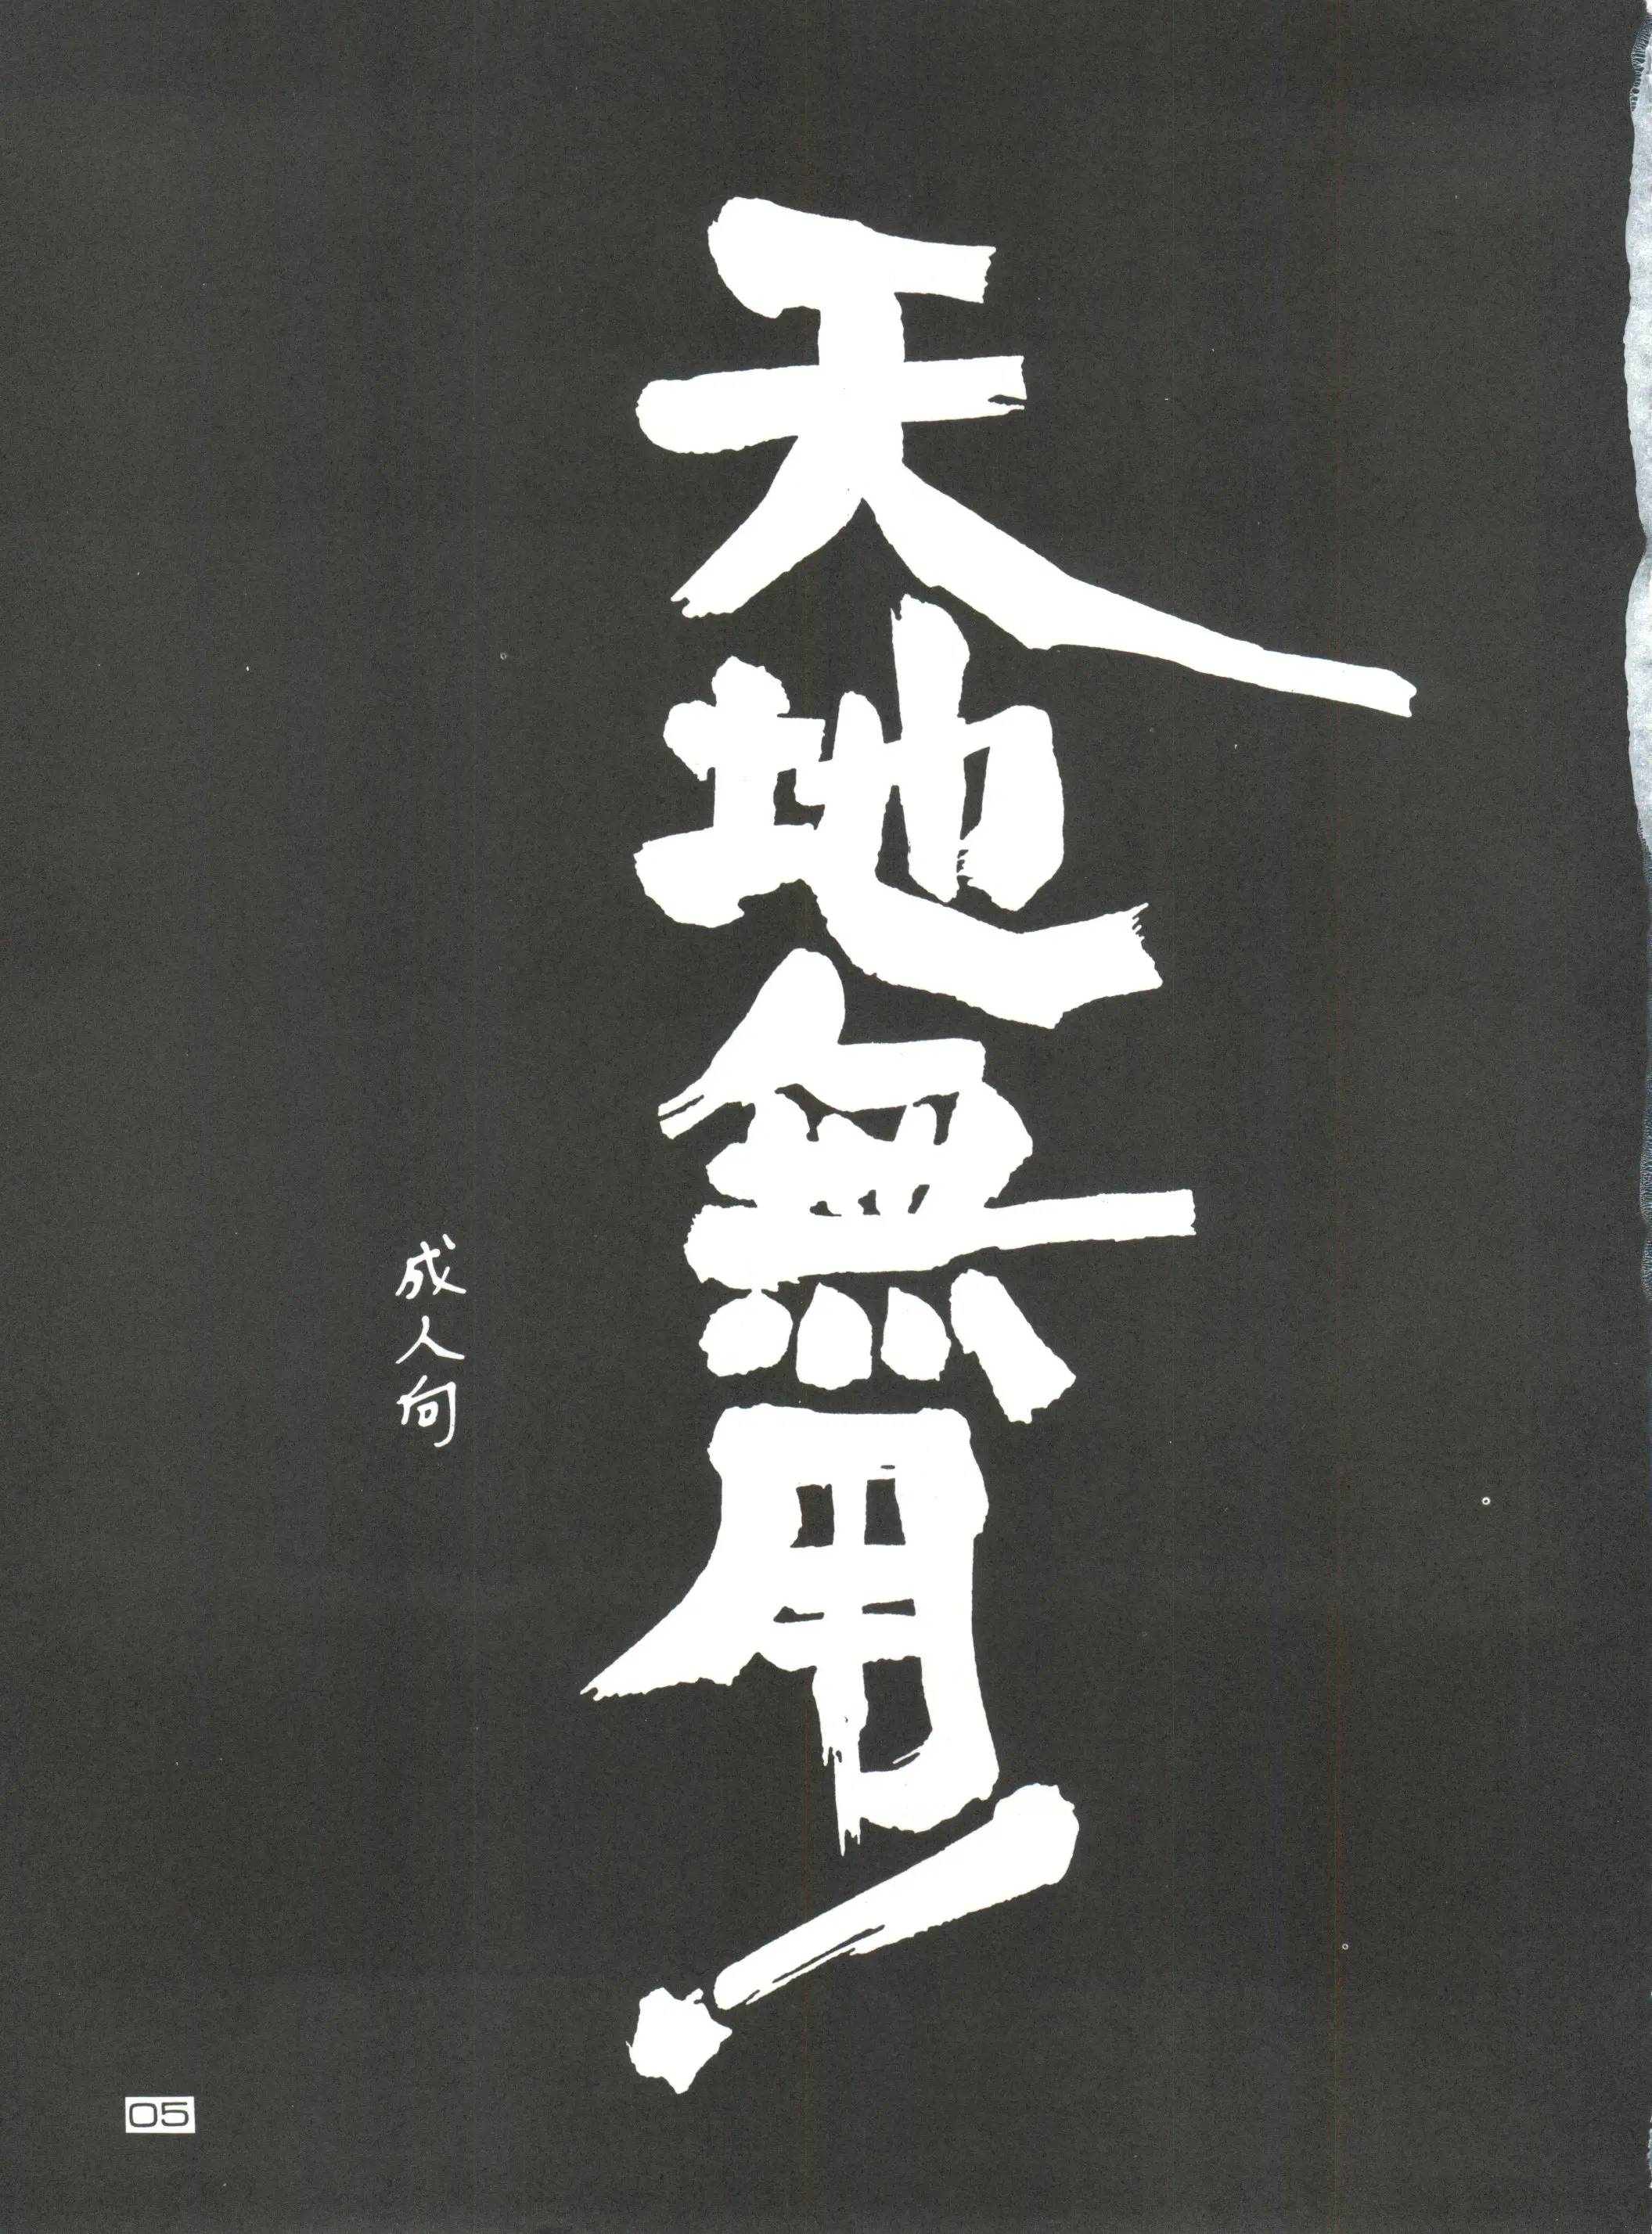 天地無用!
成人向
05